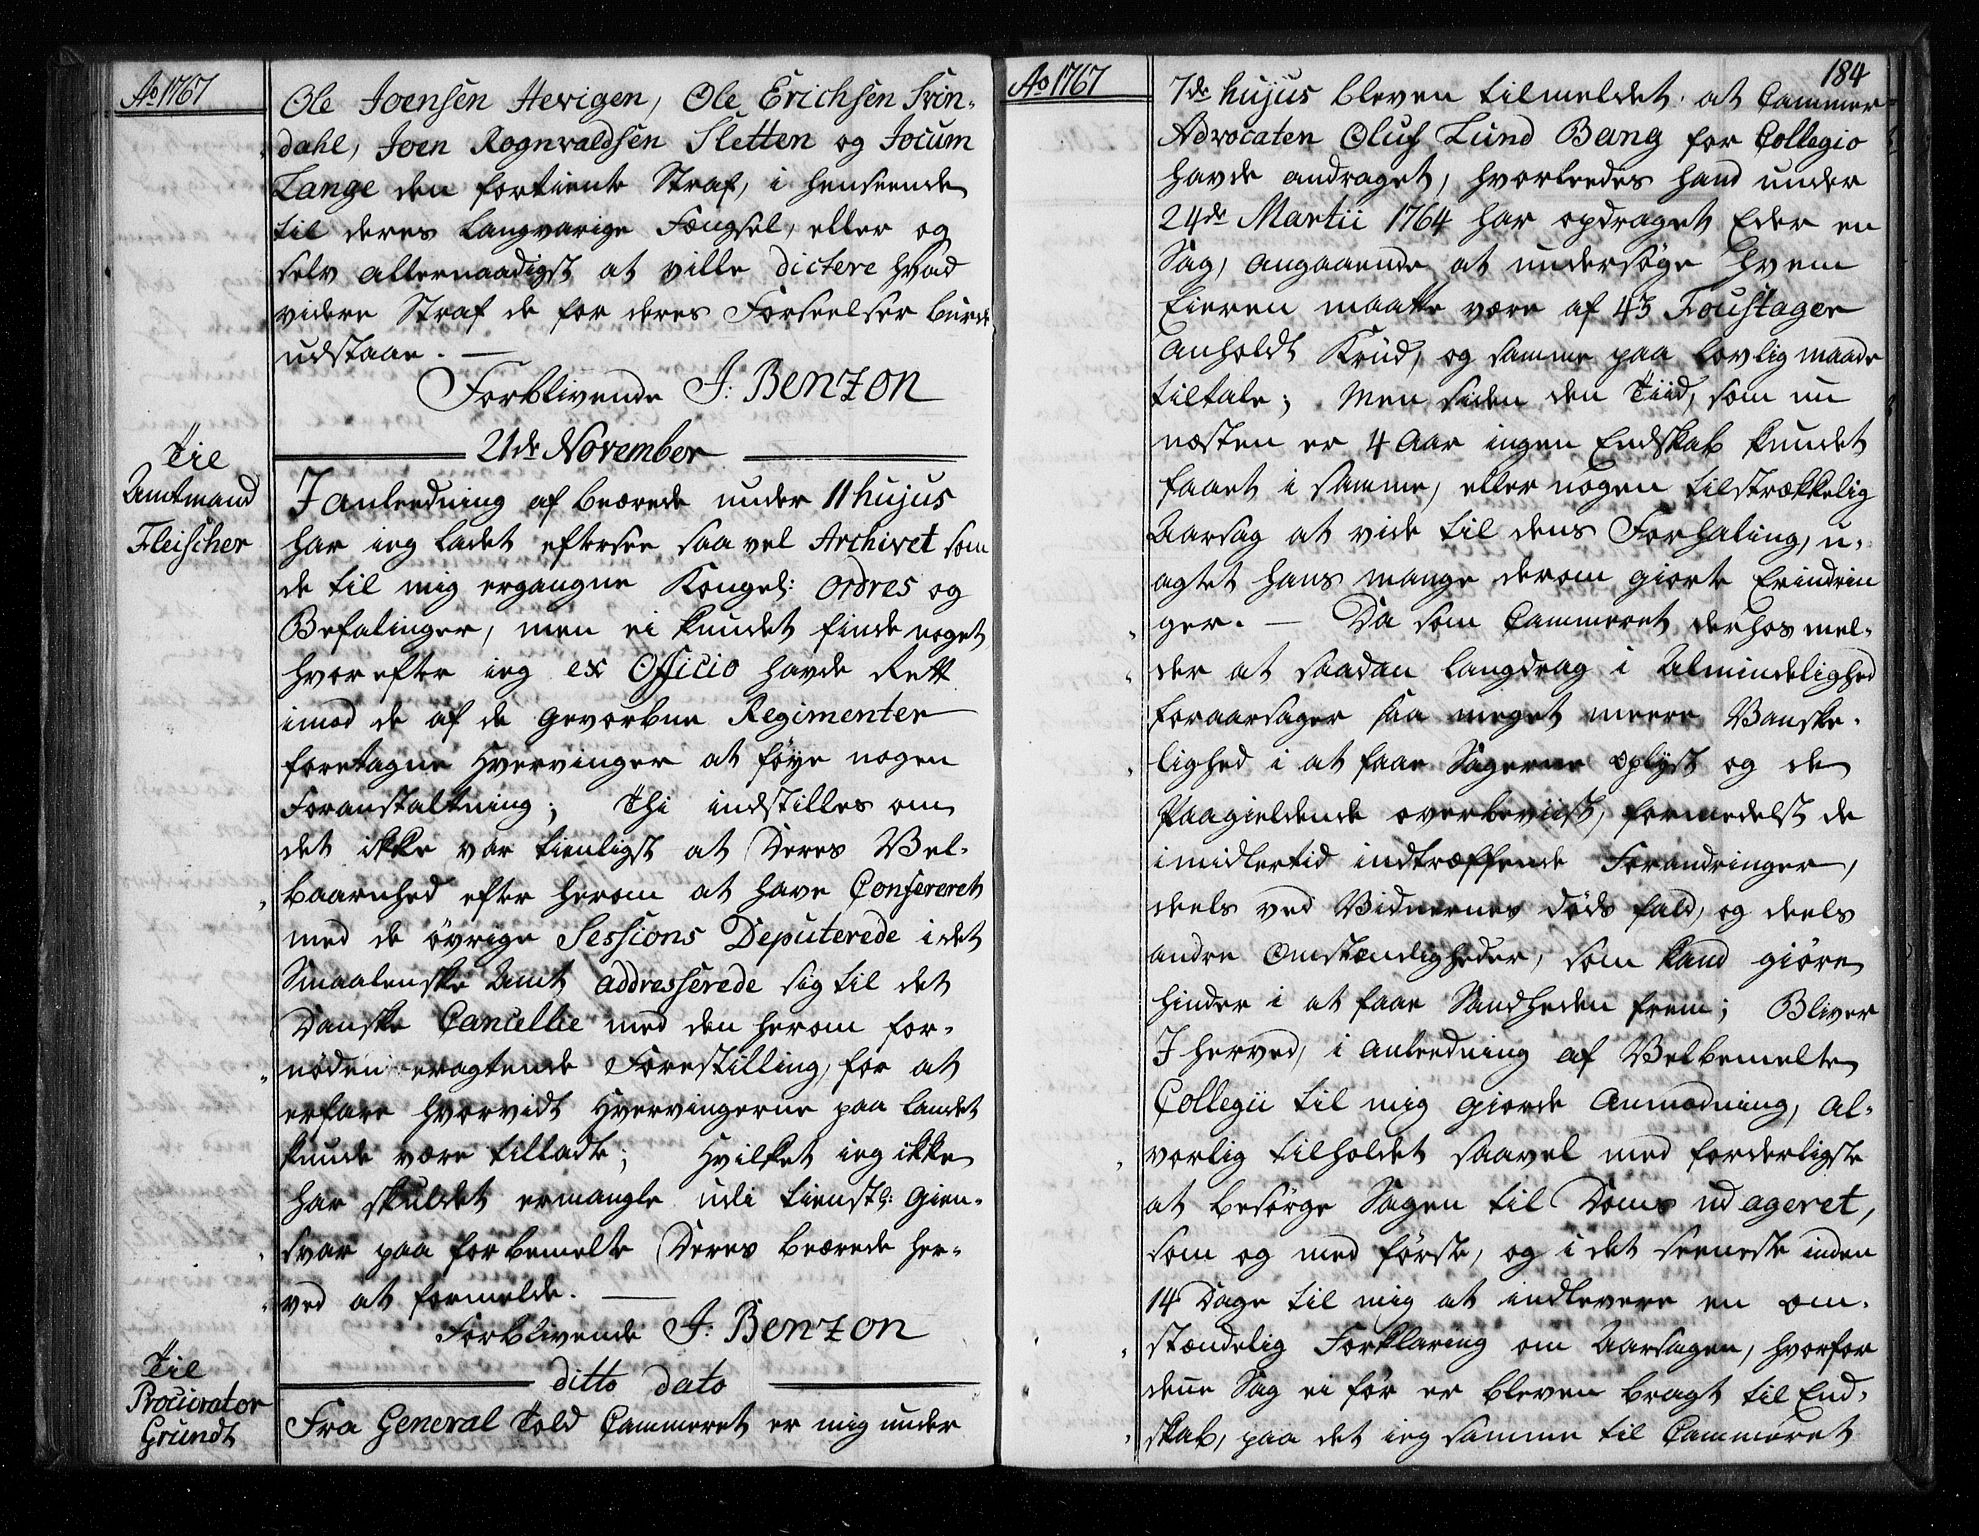 Ao 1767
Ole Joensen Hevigen, Ole Erichsen Svin-
dahl, Joen Rognvaldsen Sletten og Jocum
Lange den fortiente Straf, i henseende
til deres langvarige Fængsel, eller og
selv allernaadigst at ville dictere hvad
videre Straf de for deres Forseelser burde
udstaae. —
Forblivende J. Benzon
21de November
Til
Amtmand
Fleischer
I anleedning af beærede under 11 hujus
har ieg ladet eftersee saa vel Archivet som
de til mig ergangne Kongel: Ordres og
Befalinger, men ei kundet finde noget
hvorefter ieg ex Officio havde Rett
imod de af de gevorbne Regimenter
foretagne Hververinger at føye nogen
Foranstaltning; Thi indstilles om
det ikke var tienligst at Deres Vel-
baarnhed efter herom at have Confereret
med de øvrige Sessions Deputerede i det
Smaalenske Amt addresserede sig til det
Danske Cancellie med den herom for-
nøden eragtende Forestilling, for at
erfare hvorvidt Hvervingerne paa landet
kunde være tilladte; Hvilket ieg ikke
har skuldet ermangle udi tienstl: Gien-
svar paa forbemelte Deres beærede her-
ved at formelde. —
Forblivende J. Benzon
ditto dato
Til
Procurator
Grundt
Fra General Told Cammeret er mig under
Ao 1767
184
7de hujus bleven tilmeldet at Cammer
Advocaten Oluf Lund Bang for Collegio
havde andraget, hvorleedes hand under
24de Martii 1764 har opdraget Eder en
Sag, angaaende at undersøge hvem
Eieren maatte være af 43 Foustager
Anholdt Krud, og samme paa lovlig maade
tiltale; Men siden den Tiid, som nu
næsten er 4 Aar ingen Endskab kundet
faaet i samme, eller nogen tilstrækkelig
Aarsag at vide til dens Forhaling, u-
agtet hans mange derom giorte Erindrin
ger. — Da som Cammeret derhos mel-
der at saadan langdrag i Almindelighed
foraarsager saa meget meere Vanske-
lighed i at faae Sagerne oplyst og de
Paagieldende overbeviist, formedelst de
imidlertid indtræffende Forandringer,
deels ved Vidnernes døds fald, og deels
andre Omstændigheder, som kand giøre
hinder i at faae Sandheden frem; Bliver
I herved, i anleedning af Velbemelte
Collegii til mig giorde Anmodning, al-
vorlig tilholdet saavel med forderligste
at besørge Sagen til Doms ud ageret,
som og med første, og i det seeneste inden
14 Dage til mig at indlevere en om-
stændelig Forklaring om Aarsagen, hvorfor
denne Sag ei før er bleven bragt til End-
skab, paa det ieg samme til Cammeret